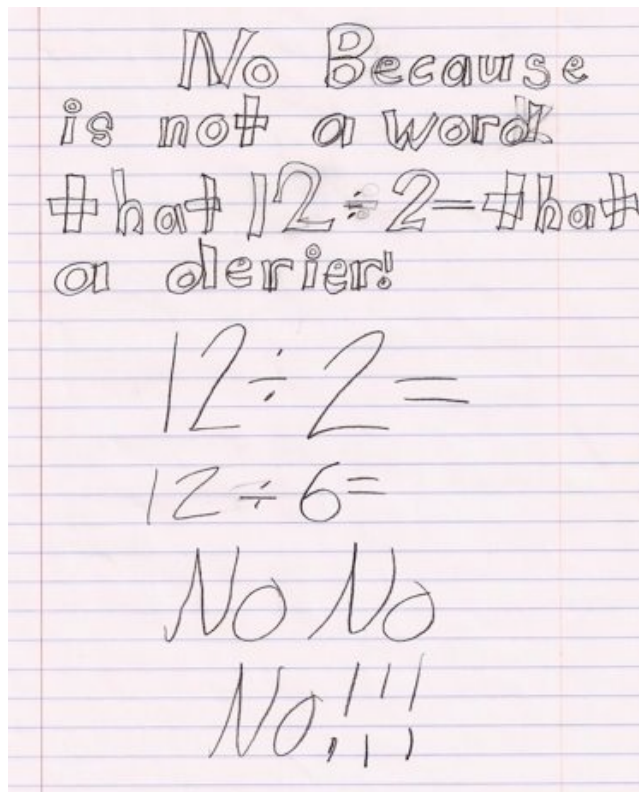 No Because
is not a word
that 12÷2=that
a derier!
12÷2=
12÷6=
No No
No!!!